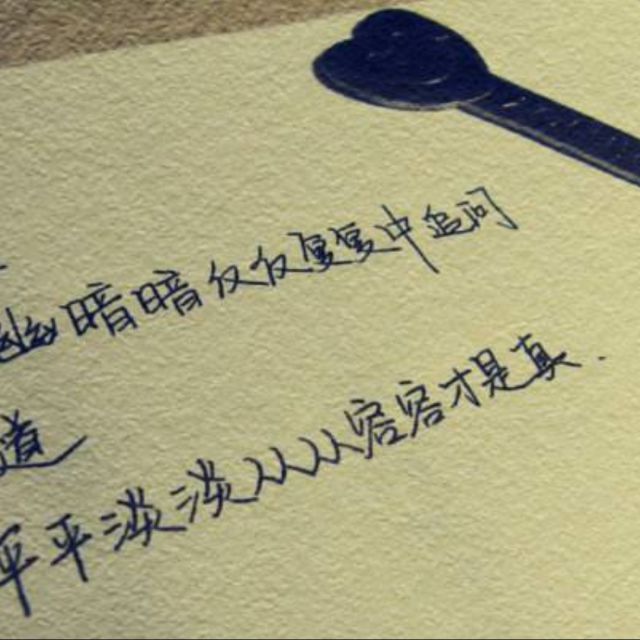 幽暗暗反反复复中追问
道
平平淡淡从从容容才是真.